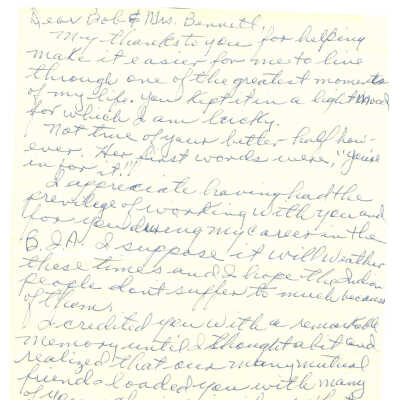 Dear Bob & Mrs. Bennett.
My thanks to you for helping
make it easier for me to live
through one of the greatest moments
of my life. You kept it in a light mood
for which I am lucky.
Not true of your better half how-
ever. Her first words were, "you're
in for it!!"
I appreciate having had the
privilege of working with you and
during my career in the
B.I.A. I suppose it will weather
these times and I hope the Indian
people dont suffer to much because
of them.
I credited you with a remarkable
memory until I thought a bit and
realized that our many mutual
friends loaded you with many